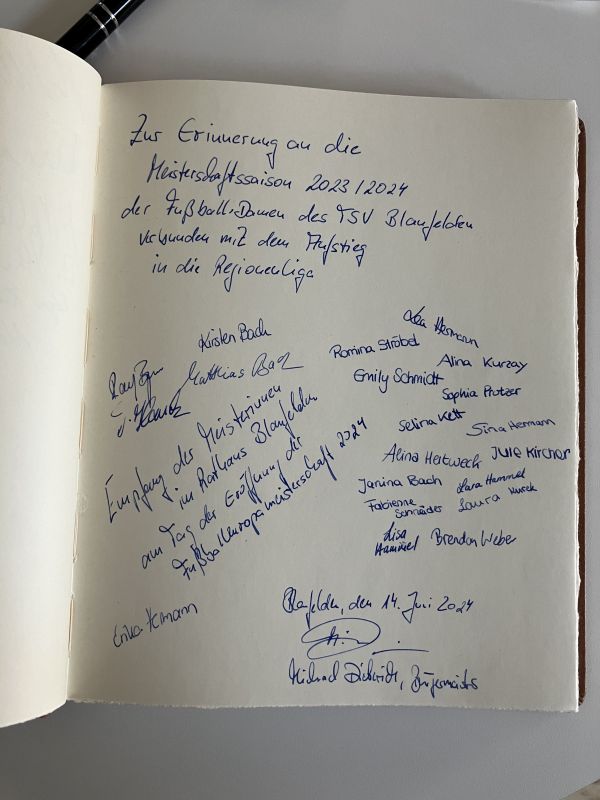 Zur Erinnerung an die
Meisterschaftssaison 2023/2024
der Fußball-Damen des TSV Blaufelden
verbunden mit dem Aufstieg
in die Regionenliga
Kirsten Bach
Matthias Bach
Empfang der Meisterinnen
im Rathaus Blaufelden
am Tag der Eröffnung der
Fußballeuropameisterschaft 2024
Erika Hermann
Lea Hermann
Romina Ströbel
Alina Kurzay
Emily Schmidt
Sophia Prutzer
Selina Kett
Sina Hermann
Alina Hertweck
Jule Kircher
Janina Bach
Lara Hammel
Fabienne
Schneider
Laura Kurek
Lisa
Hammel
Brendon Weber
Blaufelden, den 14. Juni 2024
Michael Dieterich, Bürgermeister